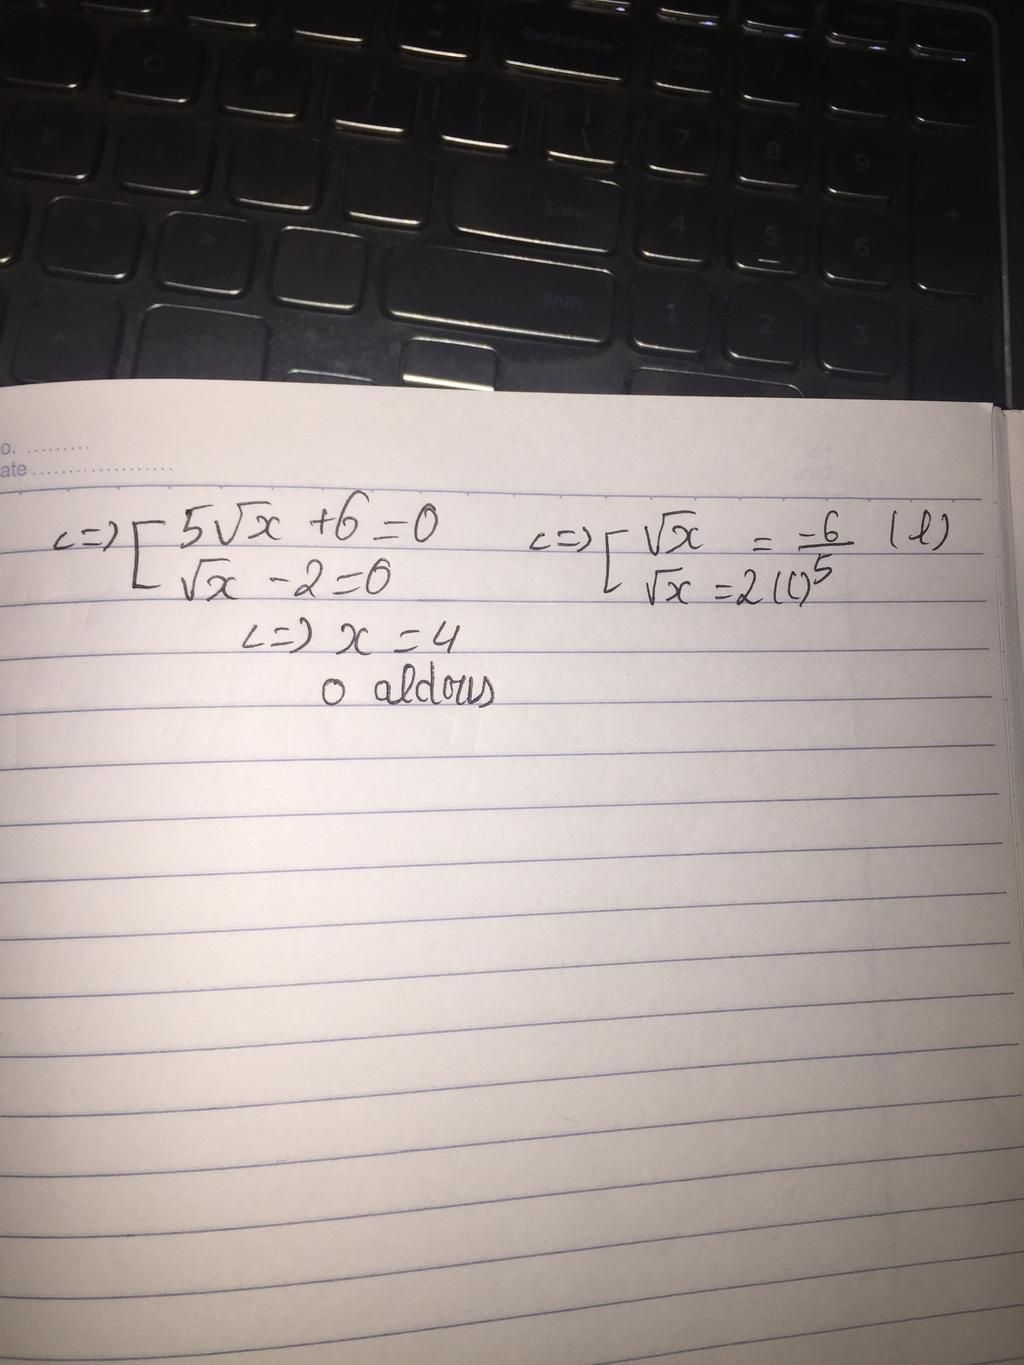 Backspace
Enter
Shift
7 8 9
4 5 6 +
1 2 3
o. .........
ate ...................
<=> [ 5√x + 6 = 0 <=> [ √x = -6/5 (l)
√x - 2 = 0 √x = 2 (t)
<=> x = 4
o aldous